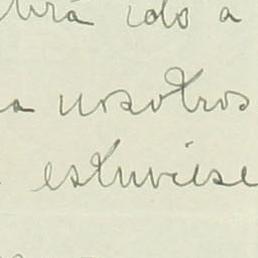 brá ido a
a nosotros
estuviese